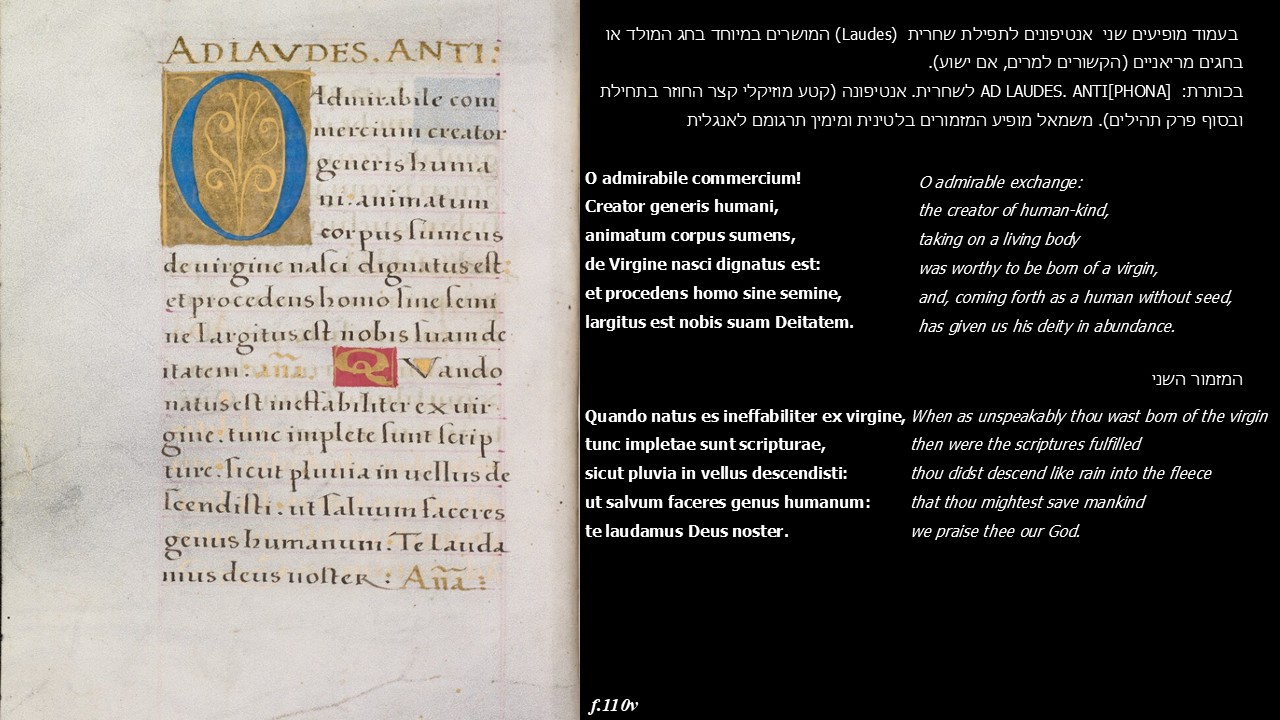 AD LAVDES. ANTI:
O Admirabile com
mercium creator
generis huma
ni. animatum
corpus sumens
de uirgine nasci dignatus est:
et procedens homo sine semi
ne Largitus est nobis suam de
itatem: aña. QVando
natus est ineffabiliter ex uir
gine. tunc implete sunt scrip
ture: sicut pluuia in uellus de
scendisti: ut saluum faceres
genus humanum: Te Lauda
mus deus noster: Aña:
בעמוד מופיעים שני אנטיפונים לתפילת שחרית (Laudes) המושרים במיוחד בחג המולד או
בחגים מריאניים (הקשורים למרים, אם ישוע).
בכותרת: AD LAUDES. ANTI[PHONA] לשחרית. אנטיפונה (קטע מוזיקלי קצר החוזר בתחילת
ובסוף פרק תהילים). משמאל מופיע המזמורים בלטינית ומימין תרגומם לאנגלית
O admirabile commercium!
Creator generis humani,
animatum corpus sumens,
de Virgine nasci dignatus est:
et procedens homo sine semine,
largitus est nobis suam Deitatem.
O admirable exchange:
the creator of human-kind,
taking on a living body
was worthy to be born of a virgin,
and, coming forth as a human without seed,
has given us his deity in abundance.
המזמור השני
Quando natus es ineffabiliter ex virgine,
tunc impletae sunt scripturae,
sicut pluvia in vellus descendisti:
ut salvum faceres genus humanum:
te laudamus Deus noster.
When as unspeakably thou wast born of the virgin
then were the scriptures fulfilled
thou didst descend like rain into the fleece
that thou mightest save mankind
we praise thee our God.
f.110v